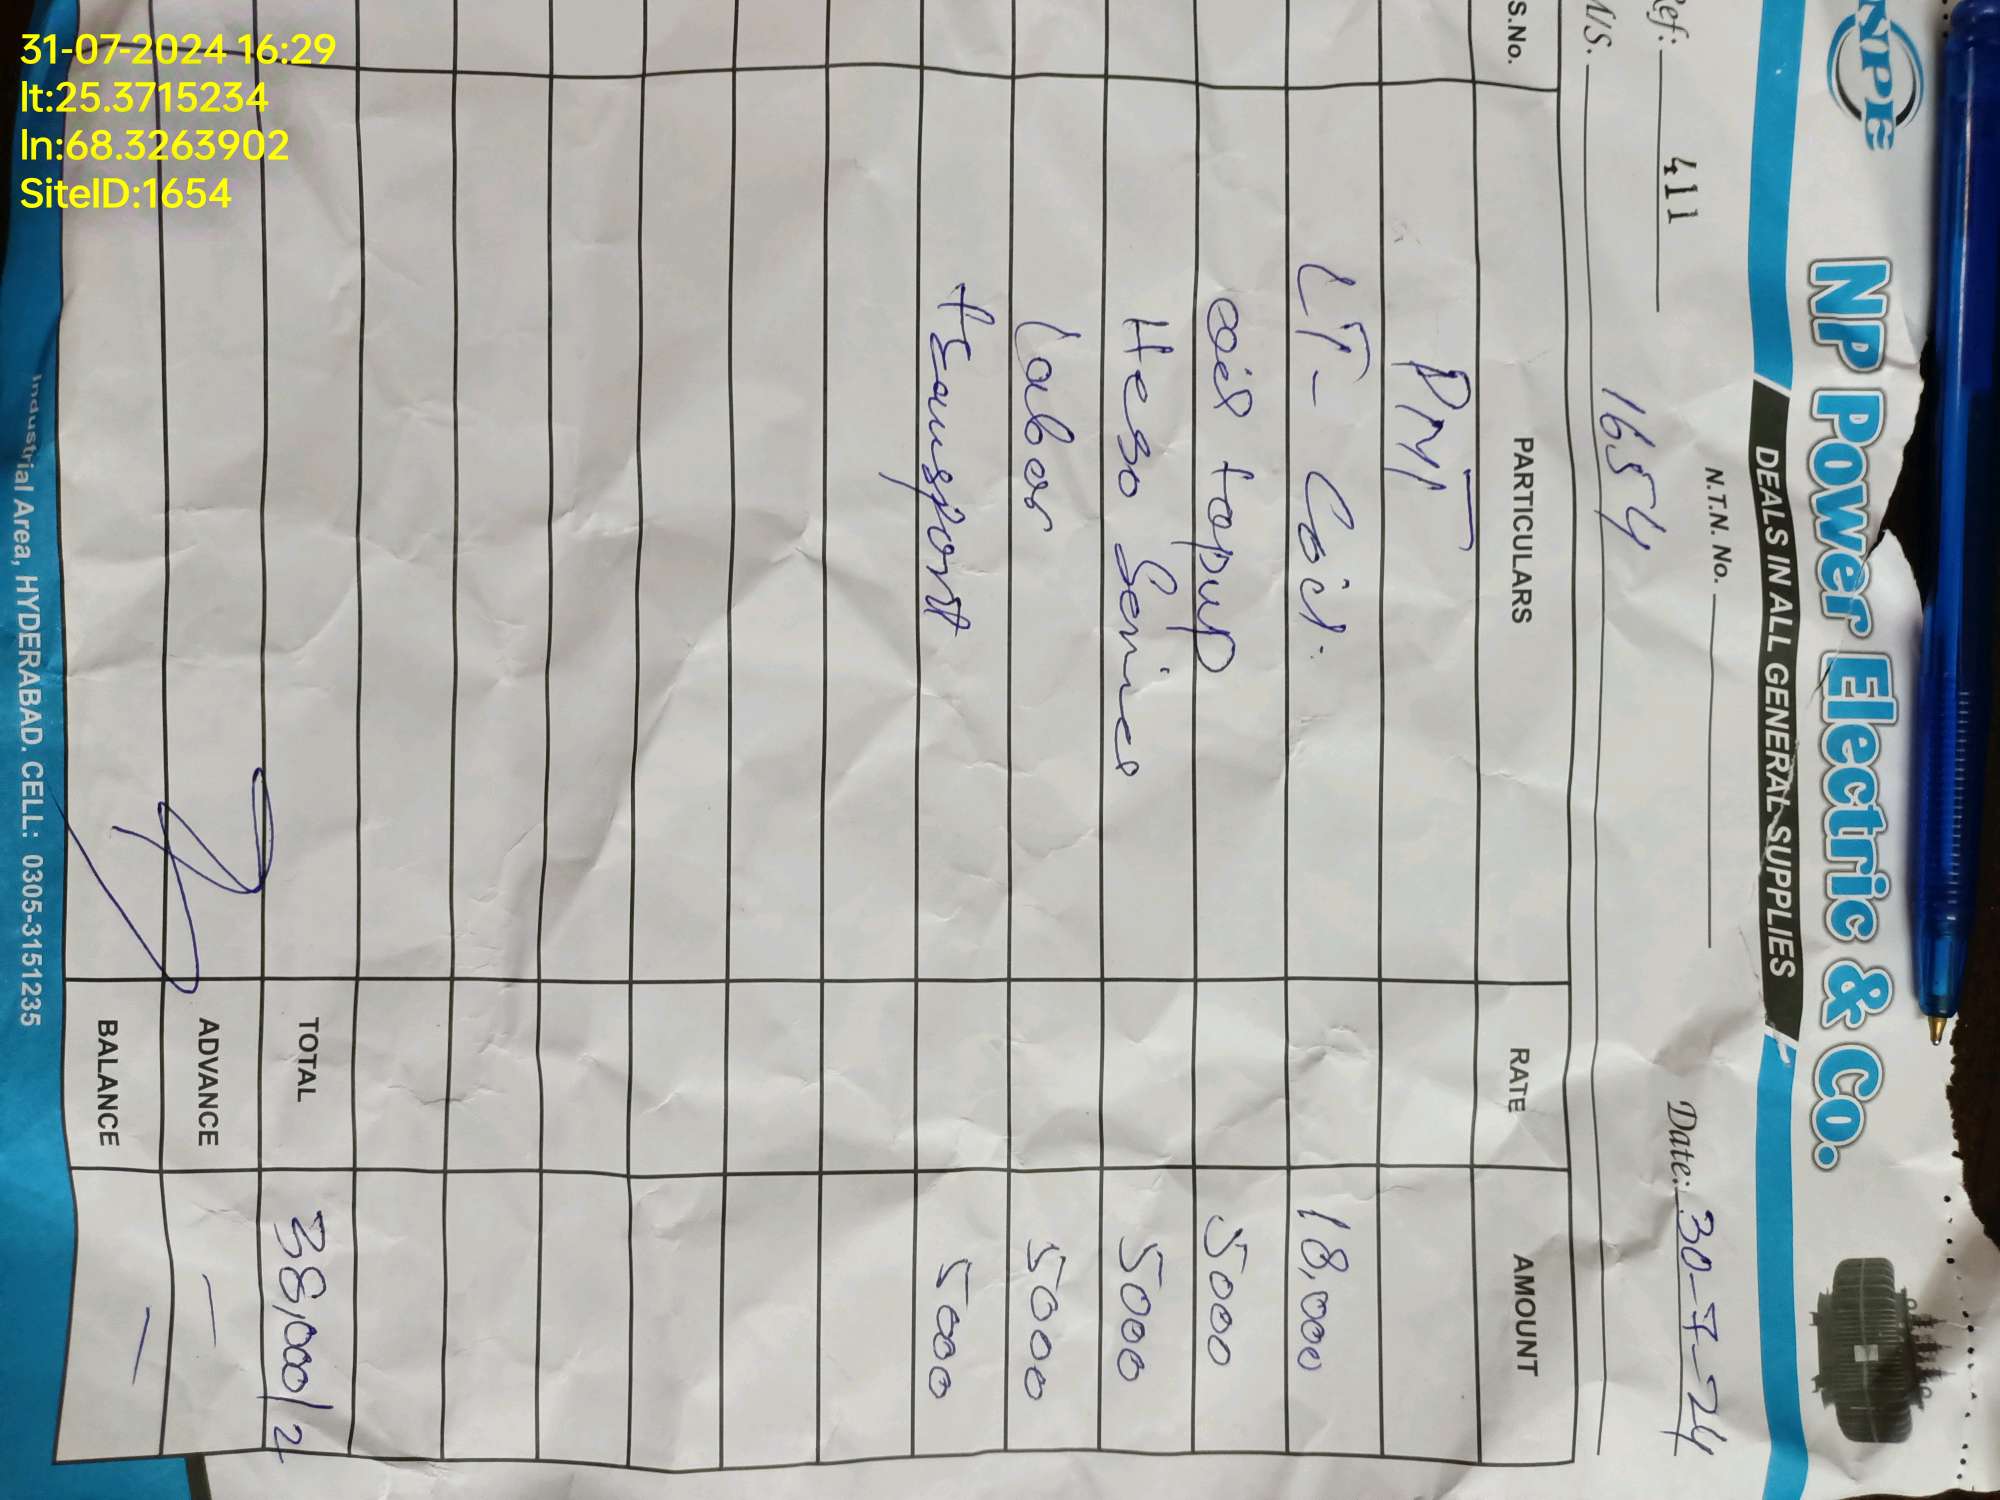 31-07-2024 16:29
lt:25.3715234
ln:68.3263902
SiteID:1654
NPE
NP Power Electric & Co.
DEALS IN ALL GENERAL SUPPLIES
N.T.N. No.
Ref: 411 Date: 30-7-24
M/S. 1654
S.No. PARTICULARS RATE AMOUNT
PMT
LT- Coil. 18,000
oil topup 5000
Heso Services 5000
Labor 5000
transport 5000
TOTAL 38,000/2
ADVANCE —
BALANCE —
Industrial Area, HYDERABAD. CELL: 0305-3151235